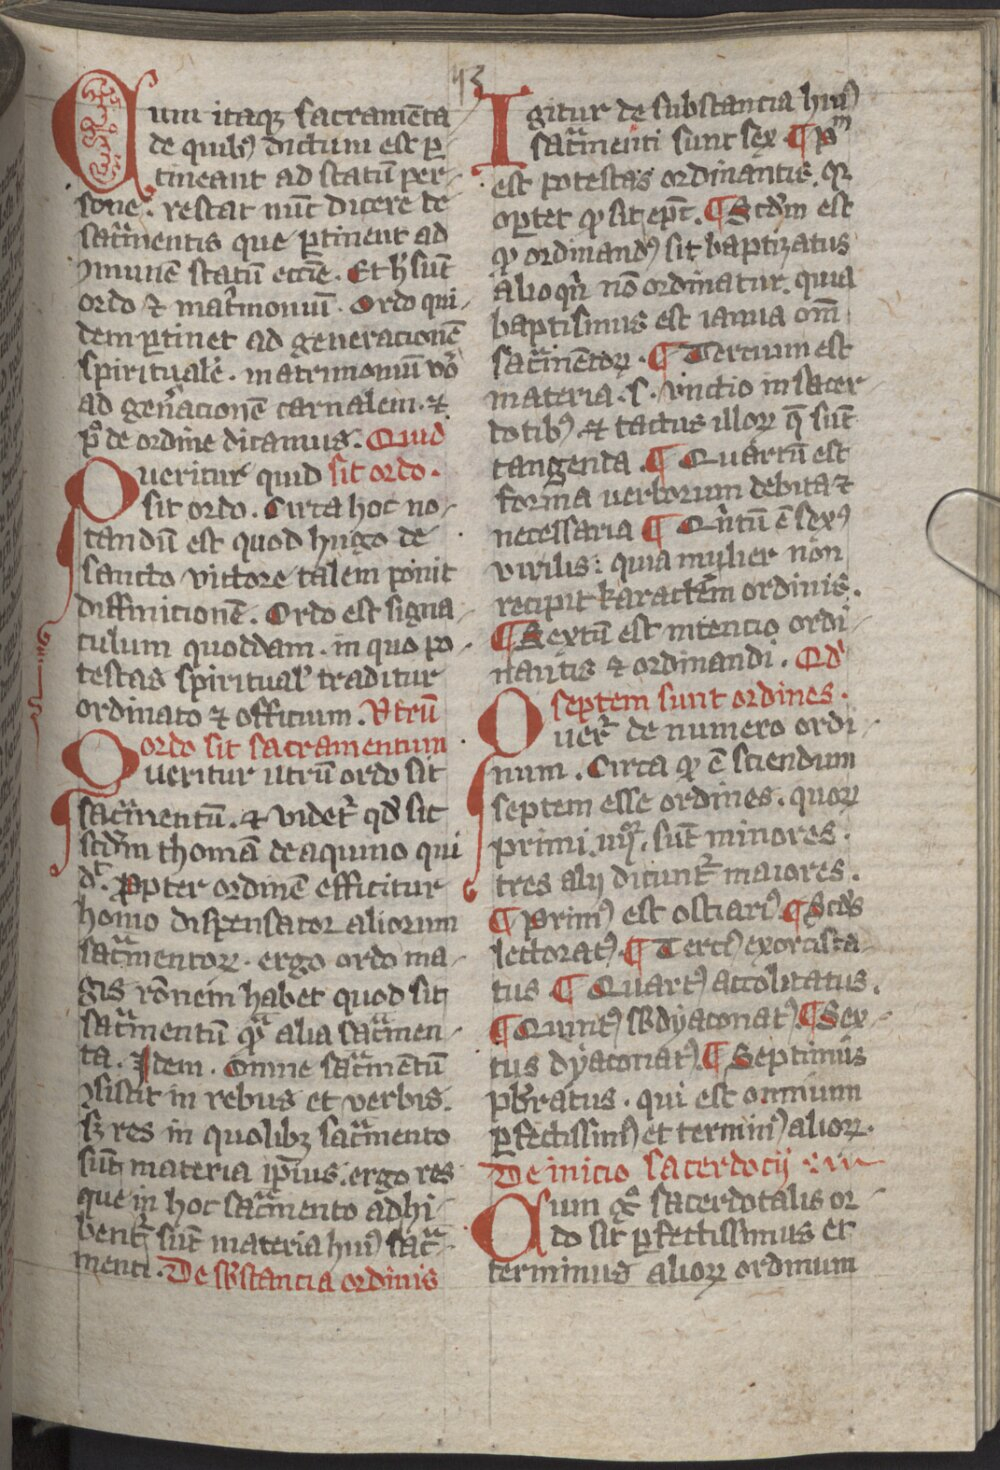 43
Cum itaqꝫ sacramēta
de quibꝰ dictum est ꝑ
tineant ad statū per
sone. restat nūc dicere de
sacͣmentis que ꝑtinent ad
ꝯmunē statū eccīe. Et h̄ sūt
ordo ⁊ mat͛moniū. Ordo qui
dem ꝑtinet ad generacionē
spiritualē. matrimoniū vō
ad gen͛acionē carnalem. ⁊
pͦ de ordine dicamus. Quid
Queritur quid sit ordo.
sit ordo. Circa hoc no
tandū est quod hugo de
sancto victore talem ponit
diffinicionē. Ordo est signa
culum quoddam. in quo po
testas spiritual̕ traditur
ordinato ⁊ officium. Vtrū
ordo sit sacramentum
Queritur utrū ordo sit
sacͣmentū. ⁊ videt᷑ qd̓ sit
scd̓m thomā de aquino qui
dt̄. ꝓpter ordinē efficitur
homo dispensator aliorum
sacͣmentoꝝ. ergo ordo ma
gis rōnem habet quod sit
sacͣmentū qͣ alia sacͣmen
ta. Idem. Omne sacͣmētū
ꝯsistit in rebus et verbis.
sꝫ res in quolibꝫ sacͣmento
sūt materia ip̄ius. ergo res
que in hoc sacͣmento adhi
bent᷑ sūt materia huiꝰ sacͣ
menti. De sb̓stancia ordinis
Igitur de substancia huiꝰ
sacͣmenti sunt sex ¶ pͫ
est potestas ordinantis. qꝛ
oꝑtet ꝙ sit ep̄c. ¶ Scd̓m est
ꝙ ordinandꝰ sit baptizatus
alioqn̄ nō ordinatur. quia
baptismus est ianua om̄
sacͣmentoꝝ. ¶ Tertium est
materia .s. vnctio in sacer
dotibꝰ ⁊ tactus illoꝝ q̄ sūt
tangenda. ¶ Quartū est
forma uerborum debita ⁊
necessaria ¶ Qn̄tū ē sexꝰ
virilis: quia mulier non
recipit karactēm ordinis.
¶ Sextū est intencio ordi
nantis ⁊ ordinandi. Qd̓
septem sunt ordines.
Quer͛ de numero ordi
num. Circa ꝙ ē sciendum
septem esse ordines. quoꝝ
primi .iiijͦꝛ. sūt minores.
tres alij dicunt᷑ maiores.
¶ Primꝰ est ostiariꝰ ¶ Scd̓s
lectoratꝰ. ¶ Terciꝰ exorcista
tus ¶ Quartꝰ accolitatus.
¶ Quintꝰ sb̓dyaconatꝰ. ¶ Sex
tus dyaconatꝰ. ¶ Septimus
pb̓ratus. qui est omnium
ꝑfectissimꝰ et terminꝰ alioꝝ.
De inicio sacerdocij
Cum gͦ sacerdotalis or
do sit ꝑfectissimus et
terminus alioꝝ ordinum